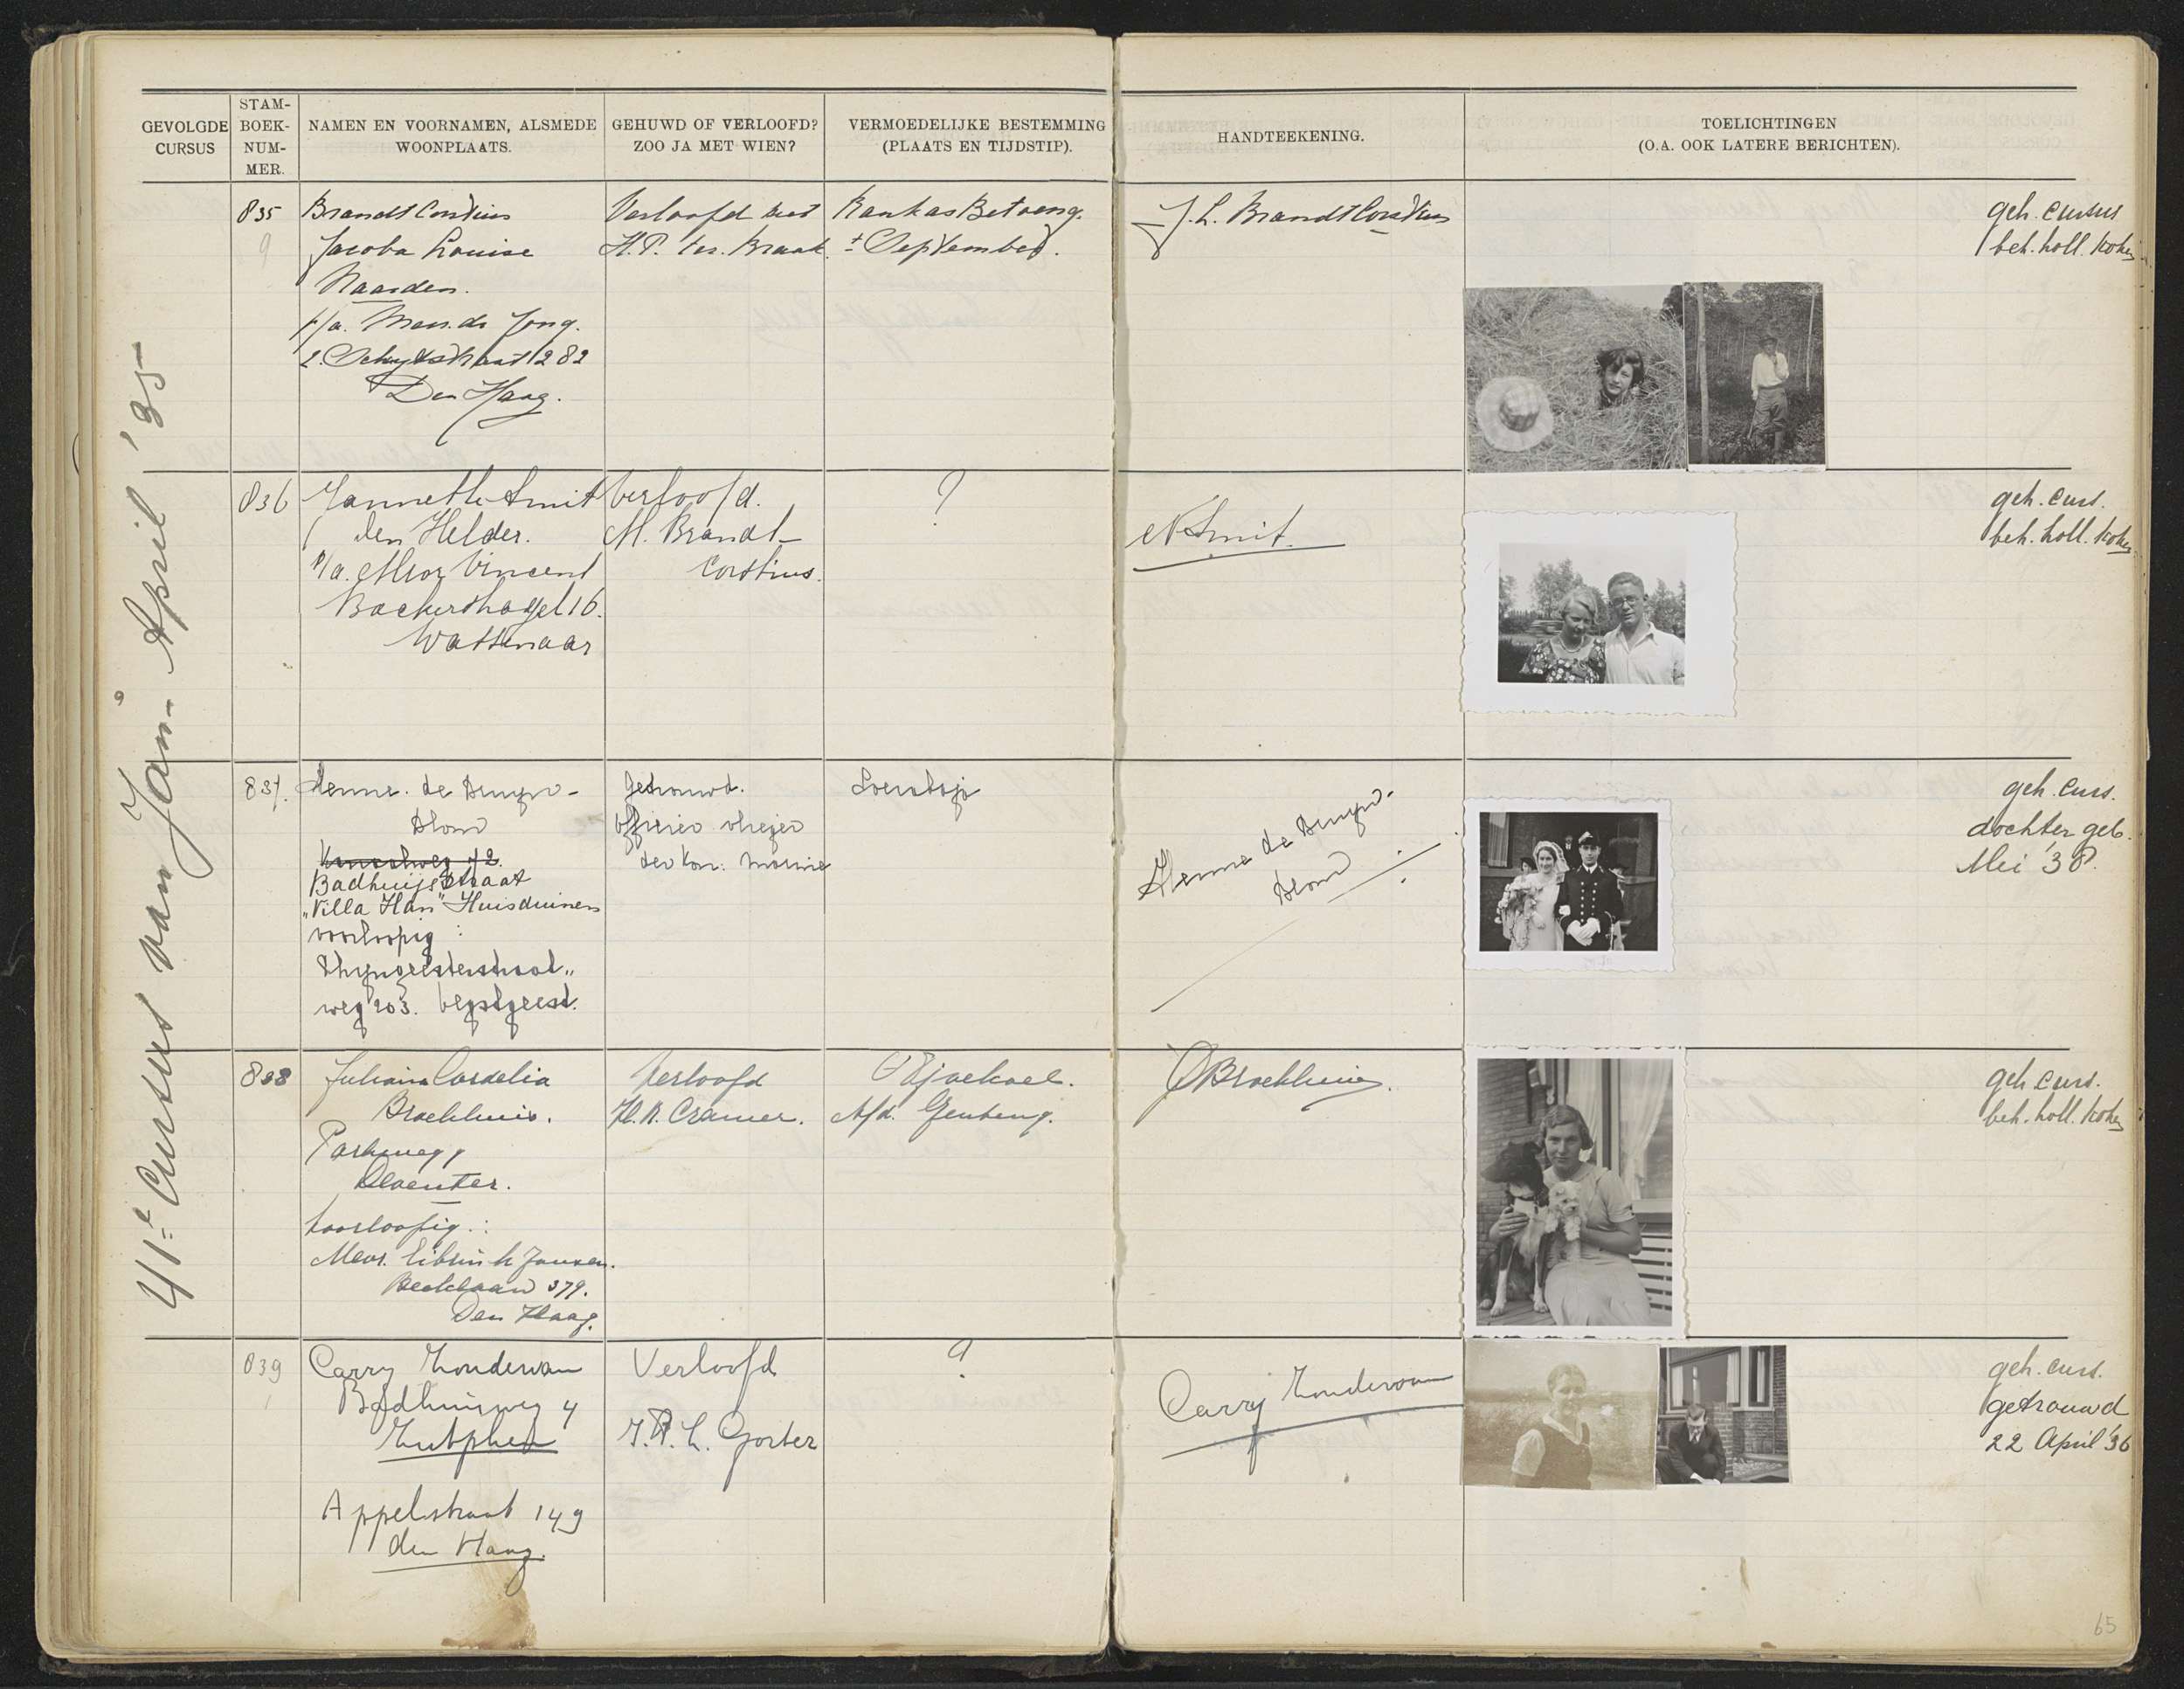 GEVOLGDE
CURSUS
STAM-
BOEK-
NUM-
MER.
NAMEN EN VOORNAMEN, ALSMEDE
WOONPLAATS.
GEHUWD OF VERLOOFD?
ZOO JA MET WIEN?
VERMOEDELIJKE BESTEMMING
(PLAATS EN TIJDSTIP).
HANDTEEKENING.
TOELICHTINGEN
(O.A. OOK LATERE BERICHTEN).
41e Cursus van Jan.- April '35
835
Brandt Corstius
Jacoba Louise
Naarden.
p/a. Mevr. de Jong.
2. Schuytstraat 282
Den Haag.
Verloofd met
H.P. ter. Braak.
Rankas Betoeng.
± September.
J. L. Brandt Corstius
geh. cursus
beh. holl. koken
836
Jannetje Smit
den Helder.
p/a. Mevr Vincent
Backershagel 16.
Wassenaar
Verloofd.
M. Brandt-
Corstius.
?
N Smit.
geh. curs.
beh. holl. koken
837.
Henne. de Bruyn-
Blom
Badhuijsstraat
"Villa Han" Huisduinen
voorloopig :
weg 203. Oegstgeest.
Getrouwd.
officier vlieger
der Kon. Marine
Soerabaja
Henne de Bruyn-
Blom
geh. curs.
dochter geb.
Mei '38.
838
Juliana Cordelia
Broekhuis.
Parkweg
Deventer.
voorloopig :
Mevr. Jansen.
Beeklaan 379.
Den Haag.
Verloofd
H.R. Cramer.
Djaekoel.
Afd. Genteng.
Broekhuis.
geh curs.
beh. holl. koken
839
Carry Zondervan
Badhuisweg 4
Zutphen
Appelstraat 149
den Haag.
Verloofd
J.R.L. Gorter
?
Carry Zondervan
geh. curs.
getrouwd
22 April '36
65